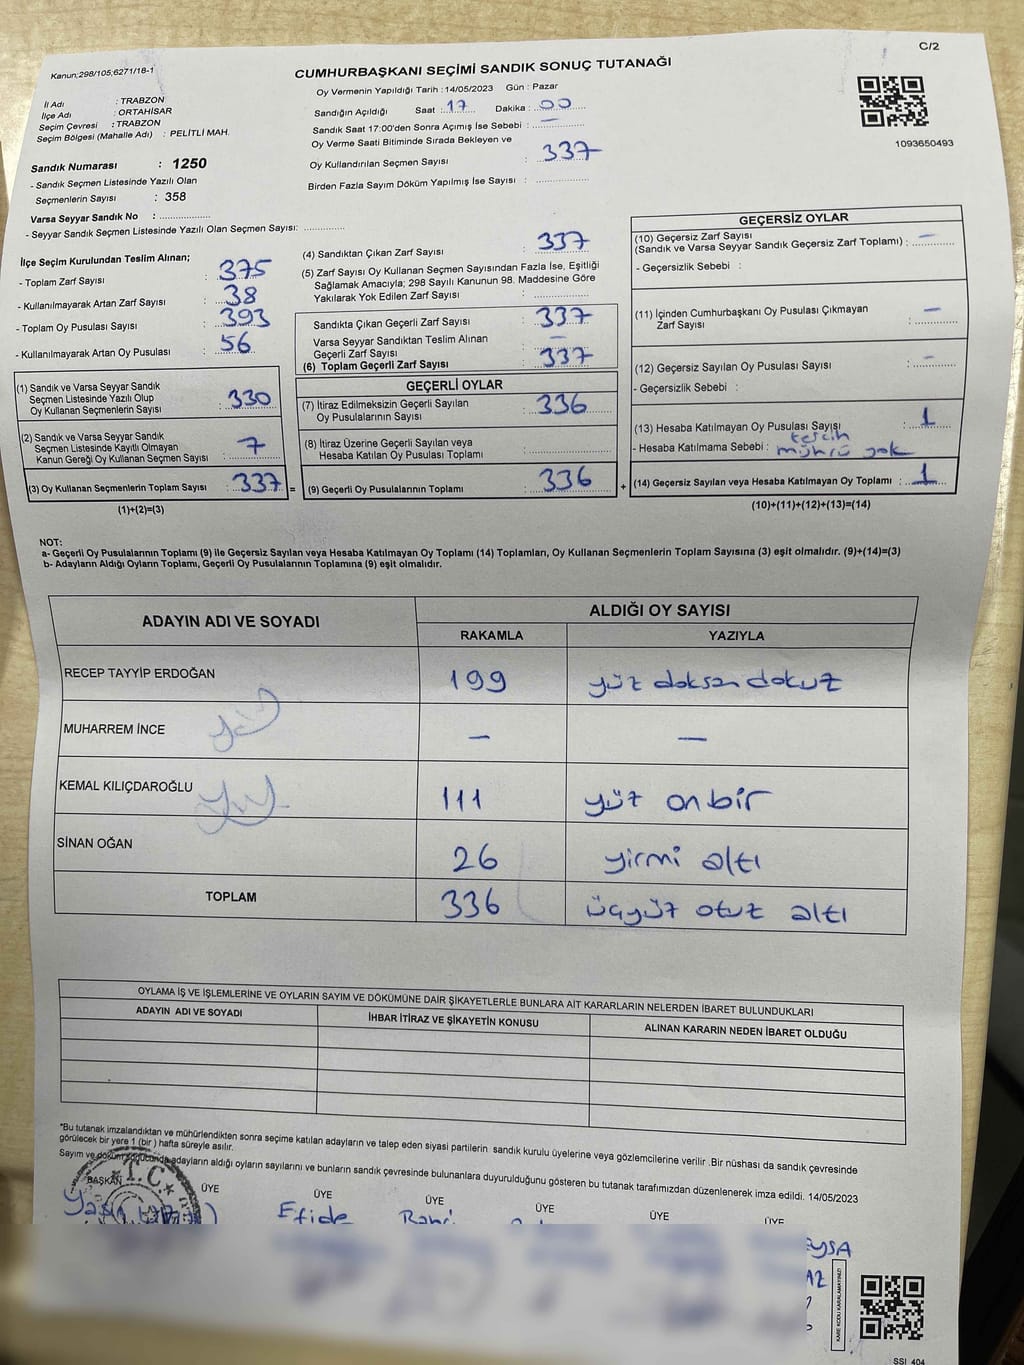 Kanun;298/105;6271/18-1
C/2
CUMHURBAŞKANI SEÇİMİ SANDIK SONUÇ TUTANAĞI
1093650493
İl Adı : TRABZON
İlçe Adı : ORTAHİSAR
Seçim Çevresi : TRABZON
Seçim Bölgesi (Mahalle Adı) : PELİTLİ MAH.
Sandık Numarası : 1250
- Sandık Seçmen Listesinde Yazılı Olan
Seçmenlerin Sayısı : 358
Varsa Seyyar Sandık No : ..................
- Seyyar Sandık Seçmen Listesinde Yazılı Olan Seçmen Sayısı: ..............
Oy Vermenin Yapıldığı Tarih : 14/05/2023 Gün : Pazar
Sandığın Açıldığı Saat : 17 Dakika : 00
Sandık Saat 17:00'den Sonra Açımış İse Sebebi : —
Oy Verme Saati Bitiminde Sırada Bekleyen ve
Oy Kullandırılan Seçmen Sayısı : 337
Birden Fazla Sayım Döküm Yapılmış İse Sayısı : ................
İlçe Seçim Kurulundan Teslim Alınan;
- Toplam Zarf Sayısı : 375
- Kullanılmayarak Artan Zarf Sayısı : 38
- Toplam Oy Pusulası Sayısı : 393
- Kullanılmayarak Artan Oy Pusulası : 56
(1) Sandık ve Varsa Seyyar Sandık
Seçmen Listesinde Yazılı Olup
Oy Kullanan Seçmenlerin Sayısı : 330
(2) Sandık ve Varsa Seyyar Sandık
Seçmen Listesinde Kayıtlı Olmayan
Kanun Gereği Oy Kullanan Seçmen Sayısı : 7
(3) Oy Kullanan Seçmenlerin Toplam Sayısı : 337 =
(1)+(2)=(3)
(4) Sandıktan Çıkan Zarf Sayısı : 337
(5) Zarf Sayısı Oy Kullanan Seçmen Sayısından Fazla İse, Eşitliği
Sağlamak Amacıyla; 298 Sayılı Kanunun 98. Maddesine Göre
Yakılarak Yok Edilen Zarf Sayısı : ................
Sandıkta Çıkan Geçerli Zarf Sayısı : 337
Varsa Seyyar Sandıktan Teslim Alınan
Geçerli Zarf Sayısı : —
(6) Toplam Geçerli Zarf Sayısı : 337
GEÇERLİ OYLAR
(7) İtiraz Edilmeksizin Geçerli Sayılan
Oy Pusulalarının Sayısı : 336
(8) İtiraz Üzerine Geçerli Sayılan veya
Hesaba Katılan Oy Pusulaları Toplamı : ................
(9) Geçerli Oy Pusulalarının Toplamı : 336 +
GEÇERSİZ OYLAR
(10) Geçersiz Zarf Sayısı
(Sandık ve Varsa Seyyar Sandık Geçersiz Zarf Toplamı) : —
- Geçersizlik Sebebi :
(11) İçinden Cumhurbaşkanı Oy Pusulası Çıkmayan
Zarf Sayısı : —
(12) Geçersiz Sayılan Oy Pusulası Sayısı : —
- Geçersizlik Sebebi :
(13) Hesaba Katılmayan Oy Pusulası Sayısı : 1
- Hesaba Katılmama Sebebi : tercih
mührü yok
(14) Geçersiz Sayılan veya Hesaba Katılmayan Oy Toplamı : 1
(10)+(11)+(12)+(13)=(14)
NOT:
a- Geçerli Oy Pusulalarının Toplamı (9) ile Geçersiz Sayılan veya Hesaba Katılmayan Oy Toplamı (14) Toplamları, Oy Kullanan Seçmenlerin Toplam Sayısına (3) eşit olmalıdır. (9)+(14)=(3)
b- Adayların Aldığı Oyların Toplamı, Geçerli Oy Pusulalarının Toplamına (9) eşit olmalıdır.
ADAYIN ADI VE SOYADI
ALDIĞI OY SAYISI
RAKAMLA YAZIYLA
RECEP TAYYİP ERDOĞAN 199 yüz doksan dokuz
MUHARREM İNCE — —
KEMAL KILIÇDAROĞLU 111 yüz on bir
SİNAN OĞAN 26 yirmi altı
TOPLAM 336 üçyüz otuz altı
OYLAMA İŞ VE İŞLEMLERİNE VE OYLARIN SAYIM VE DÖKÜMÜNE DAİR ŞİKAYETLERLE BUNLARA AİT KARARLARIN NELERDEN İBARET BULUNDUKLARI
ADAYIN ADI VE SOYADI İHBAR İTİRAZ VE ŞİKAYETİN KONUSU ALINAN KARARIN NEDEN İBARET OLDUĞU
*Bu tutanak imzalandıktan ve mühürlendikten sonra seçime katılan adayların ve talep eden siyasi partilerin sandık kurulu üyelerine veya gözlemcilerine verilir .Bir nüshası da sandık çevresinde
görülecek bir yere 1 (bir ) hafta süreyle asılır.
Sayım ve döküm sonucunda adayların aldığı oyların sayılarını ve bunların sandık çevresinde bulunanlara duyurulduğunu gösteren bu tutanak tarafımızdan düzenlenerek imza edildi. 14/05/2023
BAŞKAN ÜYE ÜYE ÜYE ÜYE ÜYE ÜYE
T.C.
Efide
EYSA
AZ
KARE KODU KARALAMAYINIZ!
SSI_404